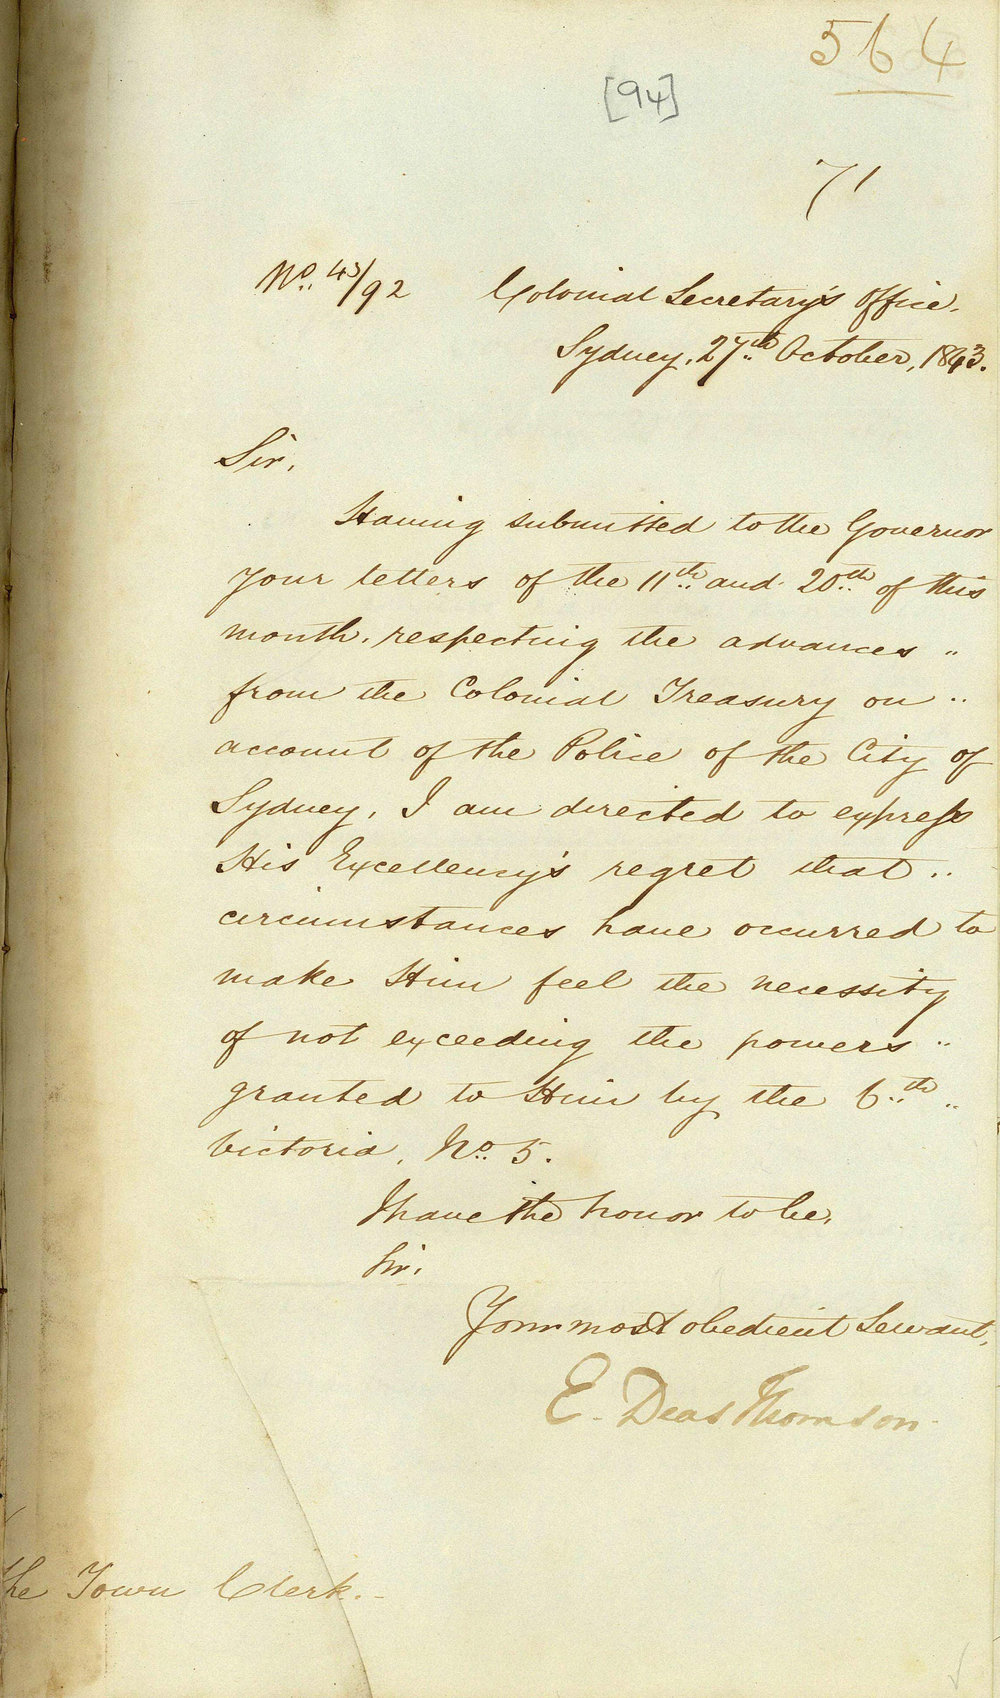 564
[94]
71
No. 43/92 Colonial Secretary's Office.
Sydney, 27th October, 1843.
Sir,
Having submitted to the Governor
your letters of the 11th and 20th of this
month, respecting the advances "
from the Colonial Treasury on "
account of the Police of the City of
Sydney, I am directed to express
His Excellency's regret that "
circumstances have occurred to
make Him feel the necessity
of not exceeding the powers "
granted to Him by the 6th "
Victoria, No. 5.
I have the honor to be,
Sir,
Your most obedient Servant,
E. Deas Thomson
The Town Clerk.